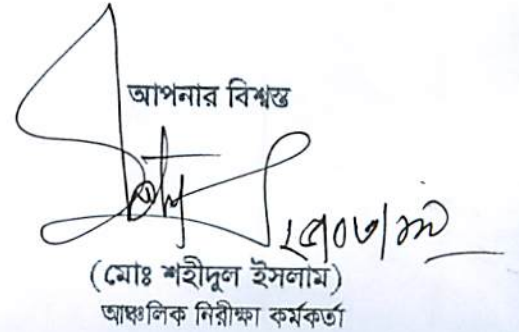 আপনার বিশ্বস্ত
(মোঃ শহীদুল ইসলাম)
আঞ্চলিক নিরীক্ষা কর্মকর্তা